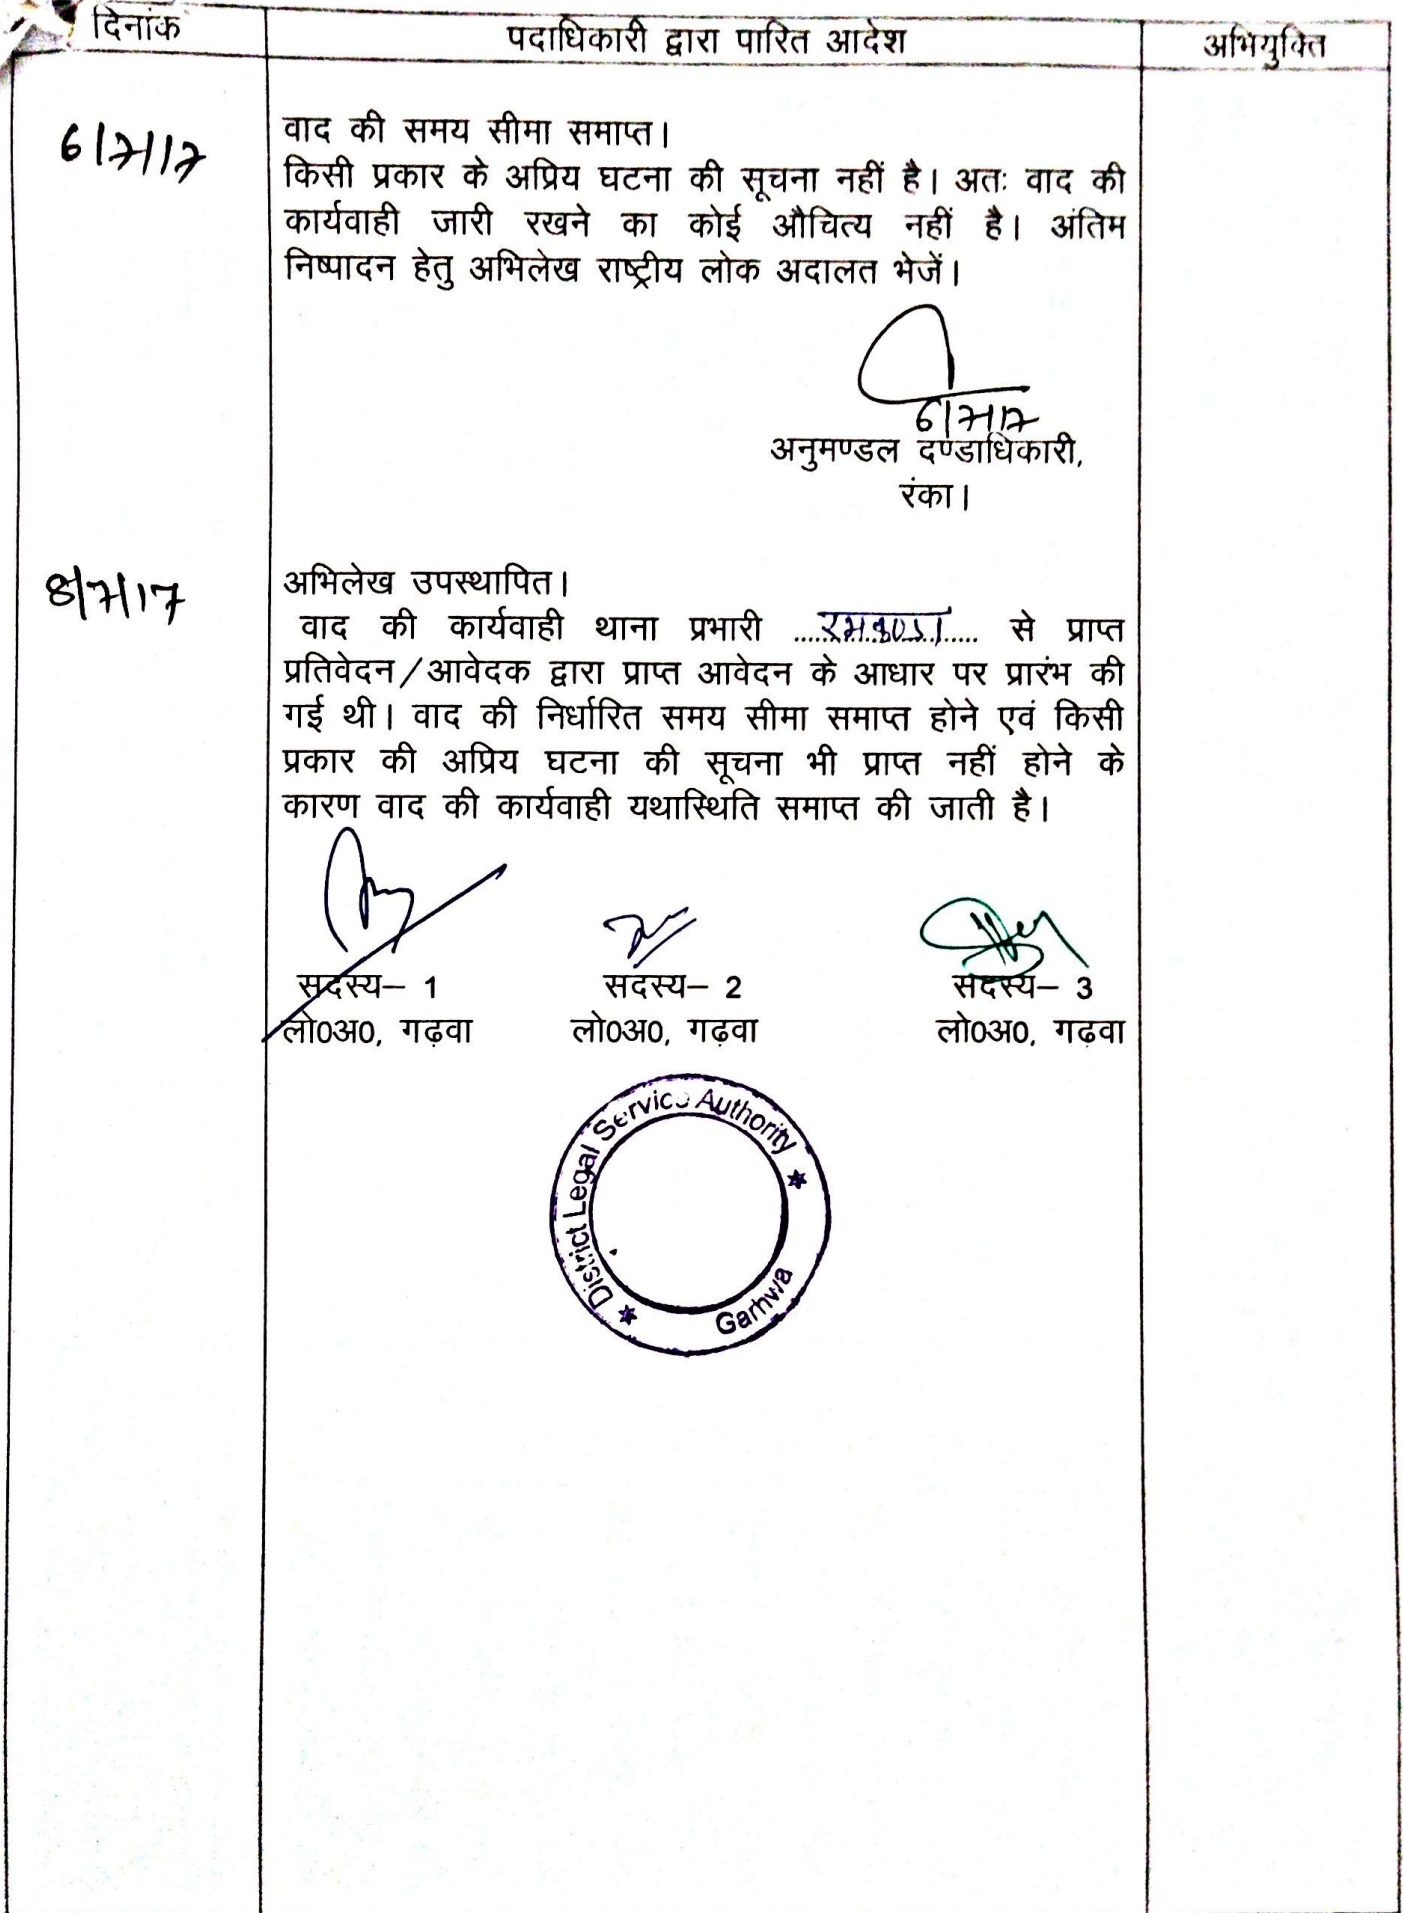 दिनांक पदाधिकारी द्वारा पारित आदेश अभियुक्ति
6/7/17
वाद की समय सीमा समाप्त।
किसी प्रकार के अप्रिय घटना की सूचना नहीं है। अतः वाद की
कार्यवाही जारी रखने का कोई औचित्य नहीं है। अंतिम
निष्पादन हेतु अभिलेख राष्ट्रीय लोक अदालत भेजें।
6/7/17
अनुमण्डल दण्डाधिकारी,
रंका।
8/7/17
अभिलेख उपस्थापित।
वाद की कार्यवाही थाना प्रभारी ....रमकण्डा.... से प्राप्त
प्रतिवेदन/आवेदक द्वारा प्राप्त आवेदन के आधार पर प्रारंभ की
गई थी। वाद की निर्धारित समय सीमा समाप्त होने एवं किसी
प्रकार की अप्रिय घटना की सूचना भी प्राप्त नहीं होने के
कारण वाद की कार्यवाही यथास्थिति समाप्त की जाती है।
सदस्य– 1 सदस्य– 2 सदस्य– 3
लो0अ0, गढ़वा लो0अ0, गढ़वा लो0अ0, गढ़वा
District Legal Service Authority
Garhwa